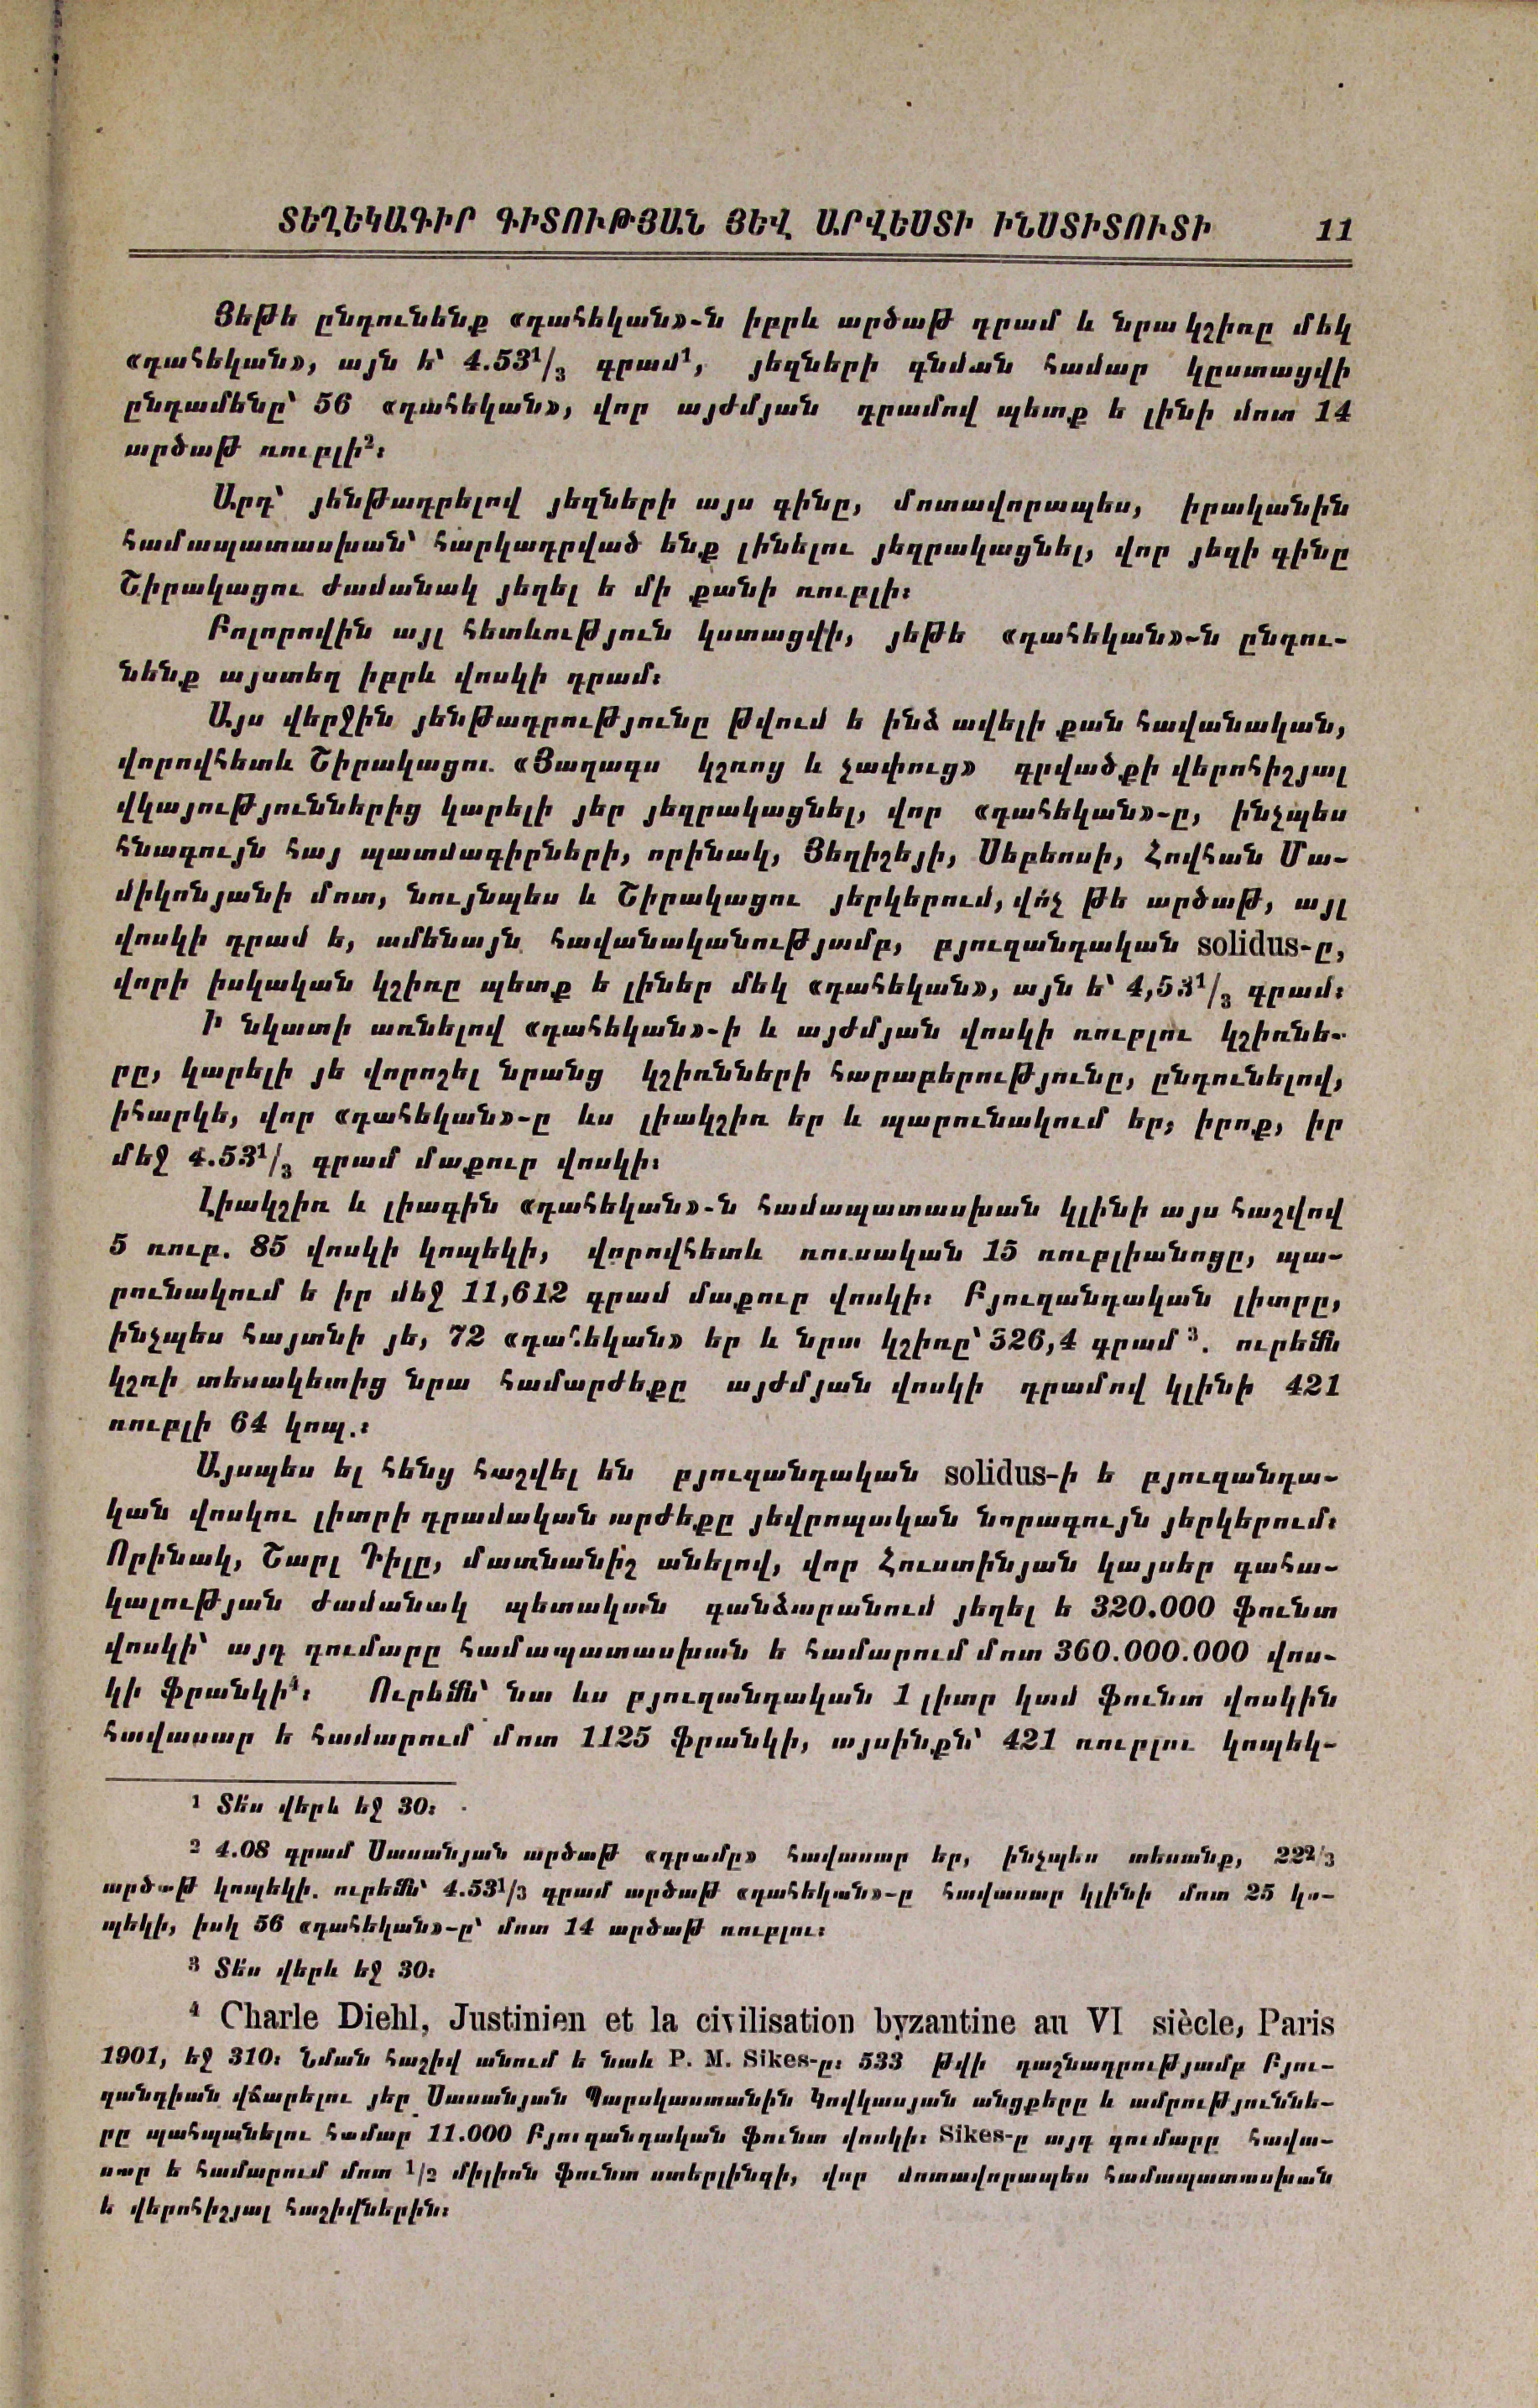 ՏԵՂԵԿԱԳԻՐ ԳԻՏՈՒԹՅԱՆ ՅԵՎ ԱՐՎԵՍՏԻ ԻՆՍՏԻՏՈՒՏԻ 11
Յեթե ընդունենք «դահեկան»-ն իբրև արծաթ դրամ և նրա կշիռը մեկ
«դահեկան», այն ե՝ 4.53¹/₃ գրամ¹, յեզների գնման համար կըստացվի
ընդամենը՝ 56 «դահեկան», վոր այժմյան դրամով պետք ե լինի մոտ 14
արծաթ ռուբլի²։
Արդ՝ յենթադրելով յեզների այս գինը, մոտավորապես, իրականին
համապատասխան՝ հարկադրված ենք լինելու յեզրակացնել, վոր յեզի գինը
Շիրակացու ժամանակ յեղել ե մի քանի ռուբլի։
Բոլորովին այլ հետևություն կստացվի, յեթե «դահեկան»-ն ընդու-
նենք այստեղ իբրև վոսկի դրամ։
Այս վերջին յենթադրությունը թվում ե ինձ ավելի քան հավանական,
վորովհետև Շիրակացու «Յաղագս կշռոց և չափուց» գրվածքի վերոհիշյալ
վկայություններից կարելի յեր յեզրակացնել, վոր «դահեկան»-ը, ինչպես
հնագույն հայ պատմագիրների, որինակ, Յեղիշեյի, Սեբեոսի, Հովհան Մա-
միկոնյանի մոտ, նույնպես և Շիրակացու յերկերում, վո՛չ թե արծաթ, այլ
վոսկի դրամ ե, ամենայն հավանականությամբ, բյուզանդական solidus-ը,
վորի իսկական կշիռը պետք ե լիներ մեկ «դահեկան», այն ե՝ 4,53¹/₃ գրամ։
Ի նկատի առնելով «դահեկան»-ի և այժմյան վոսկի ռուբլու կշիռնե-
րը, կարելի յե վորոշել նրանց կշիռնների հարաբերությունը, ընդունելով,
իհարկե, վոր «դահեկան»-ը ևս լիակշիռ եր և պարունակում եր, իրոք, իր
մեջ 4.53¹/₃ գրամ մաքուր վոսկի։
Լիակշիռ և լիագին «դահեկան»-ն համապատասխան կլինի այս հաշվով
5 ռուբ. 85 վոսկի կոպեկի, վորովհետև ռուսական 15 ռուբլիանոցը, պա-
րունակում ե իր մեջ 11,612 գրամ մաքուր վոսկի։ Բյուզանդական լիտրը,
ինչպես հայտնի յե, 72 «դահեկան» եր և նրա կշիռը՝ 326,4 գրամ³. ուրեմն
կշռի տեսակետից նրա համարժեքը այժմյան վոսկի դրամով կլինի 421
ռուբլի 64 կոպ.։
Այսպես ել հենց հաշվել են բյուզանդական solidus-ի ե բյուզանդա-
կան վոսկու լիտրի դրամական արժեքը յեվրոպական նորագույն յերկերում։
Որինակ, Շարլ Դիլը, մատնանիշ անելով, վոր Հուստինյան կայսեր գահա-
կալության ժամանակ պետական գանձարանում յեղել ե 320.000 ֆունտ
վոսկի՝ այդ գումարը համապատասխան ե համարում մոտ 360.000.000 վոս-
կի ֆրանկի⁴։ Ուրեմն՝ նա ևս բյուզանդական 1 լիտր կամ ֆունտ վոսկին
հավասար ե համարում մոտ 1125 ֆրանկի, այսինքն՝ 421 ռուբլու կոպեկ-
¹ Տե՛ս վերև եջ 30։
² 4.08 գրամ Սասանյան արծաթ «դրամը» հավասար եր, ինչպես տեսանք, 22²/₃
արծաթ կոպեկի. ուրեմն՝ 4.53¹/₃ գրամ արծաթ «դահեկան»-ը հավասար կլինի մոտ 25 կո-
պեկի, իսկ 56 «դահեկան»-ը՝ մոտ 14 արծաթ ռուբլու։
³ Տե՛ս վերև եջ 30։
⁴ Charle Diehl, Justinien et la civilisation byzantine au VI siècle, Paris
1901, եջ 310։ Նման հաշիվ անում ե նաև P. M. Sikes-ը։ 533 թվի դաշնադրությամբ Բյու-
զանդիան վճարելու յեր Սասանյան Պարսկաստանին Կովկասյան անցքերը և ամրություննե-
րը պահպանելու համար 11.000 Բյուզանդական ֆունտ վոսկի։ Sikes-ը այդ գումարը հավա-
սար ե համարում մոտ ¹/₂ միլիոն ֆունտ ստերլինգի, վոր մոտավորապես համապատասխան
ե վերոհիշյալ հաշիվներին։